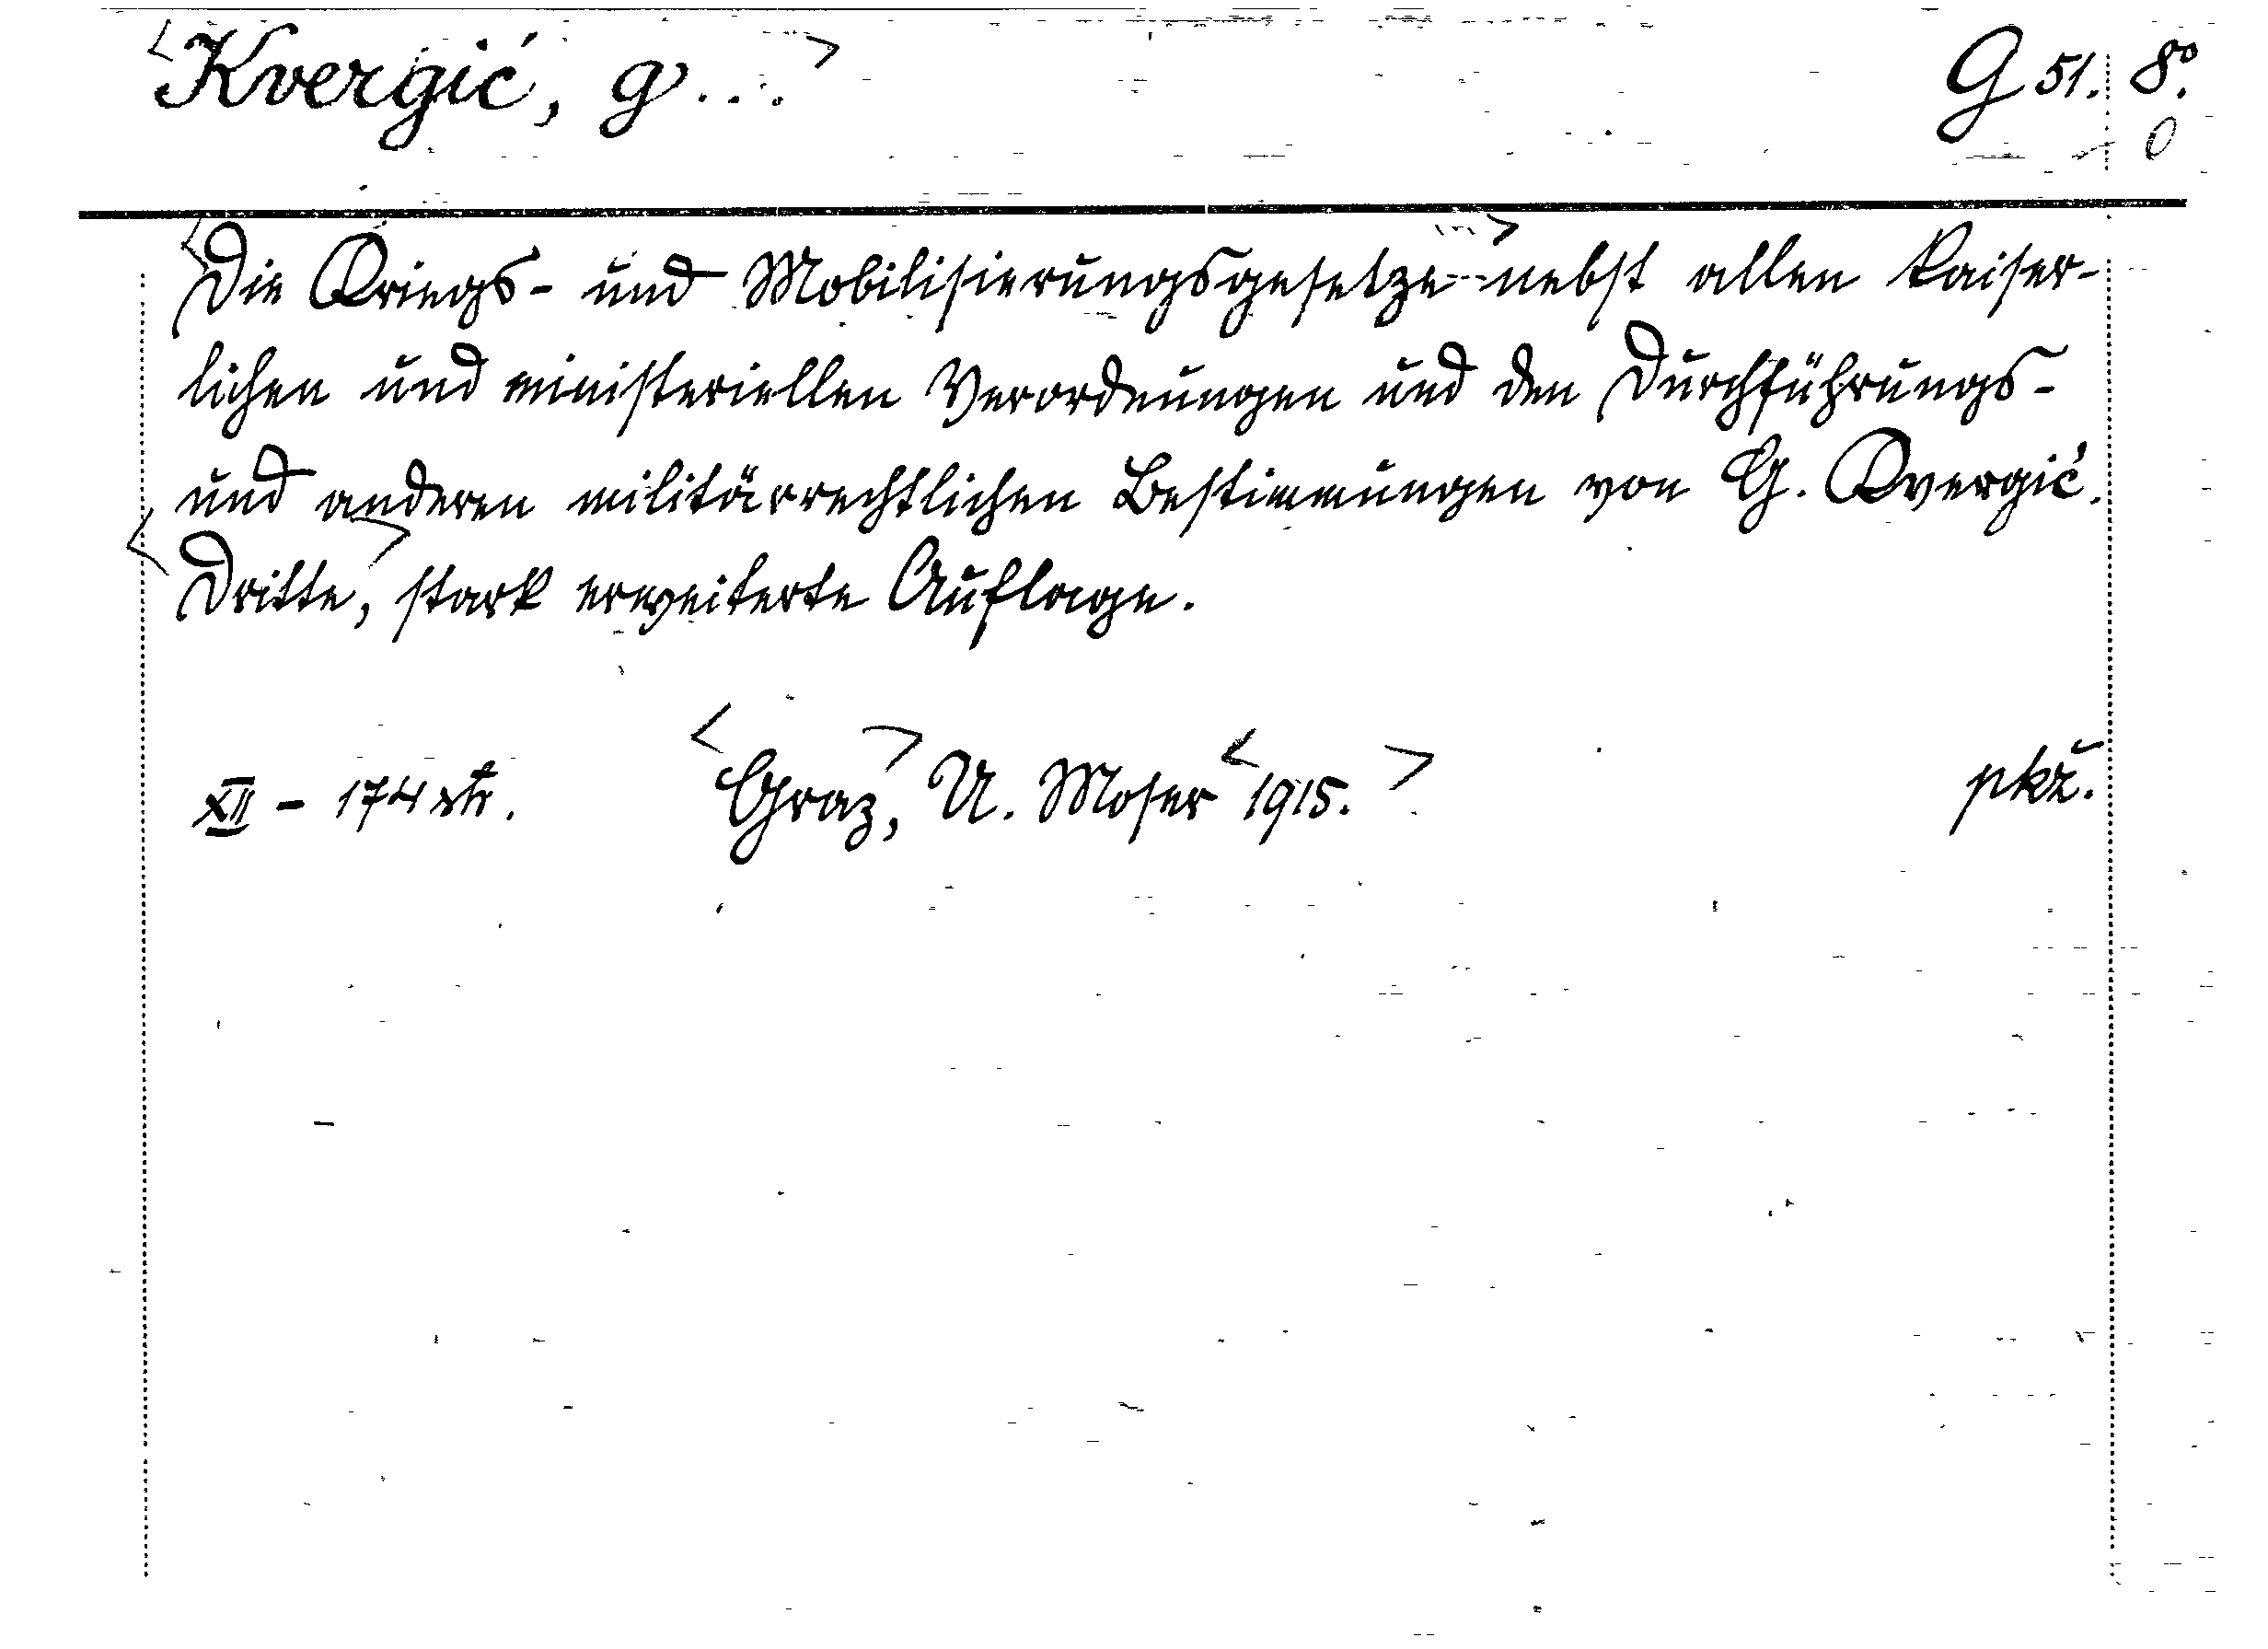 Kvergić, G...
G 51. 8º.
Die Kriegs- und Mobilisierungsgesetze nebst allen kaiser-
lichen und ministeriellen Verordnungen und den Durchführungs-
und anderen militärrechtlichen Bestimmungen von G. Kvergić.
Dritte, stark erweiterte Auflage.
XII - 174 str. Graz, U. Moser 1915.